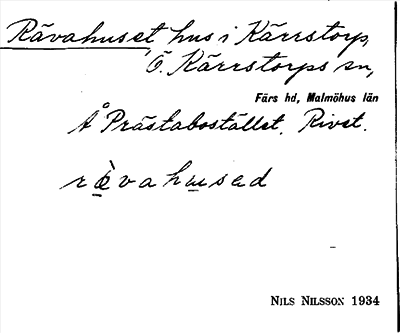 Rävahuset hus i Kärrstorp,
Ö. Kärrstorps sn,
Färs hd, Malmöhus län
Å Prästabostället. Rivet.
rὰ̱vahu̱sed
NILS NILSSON 1934